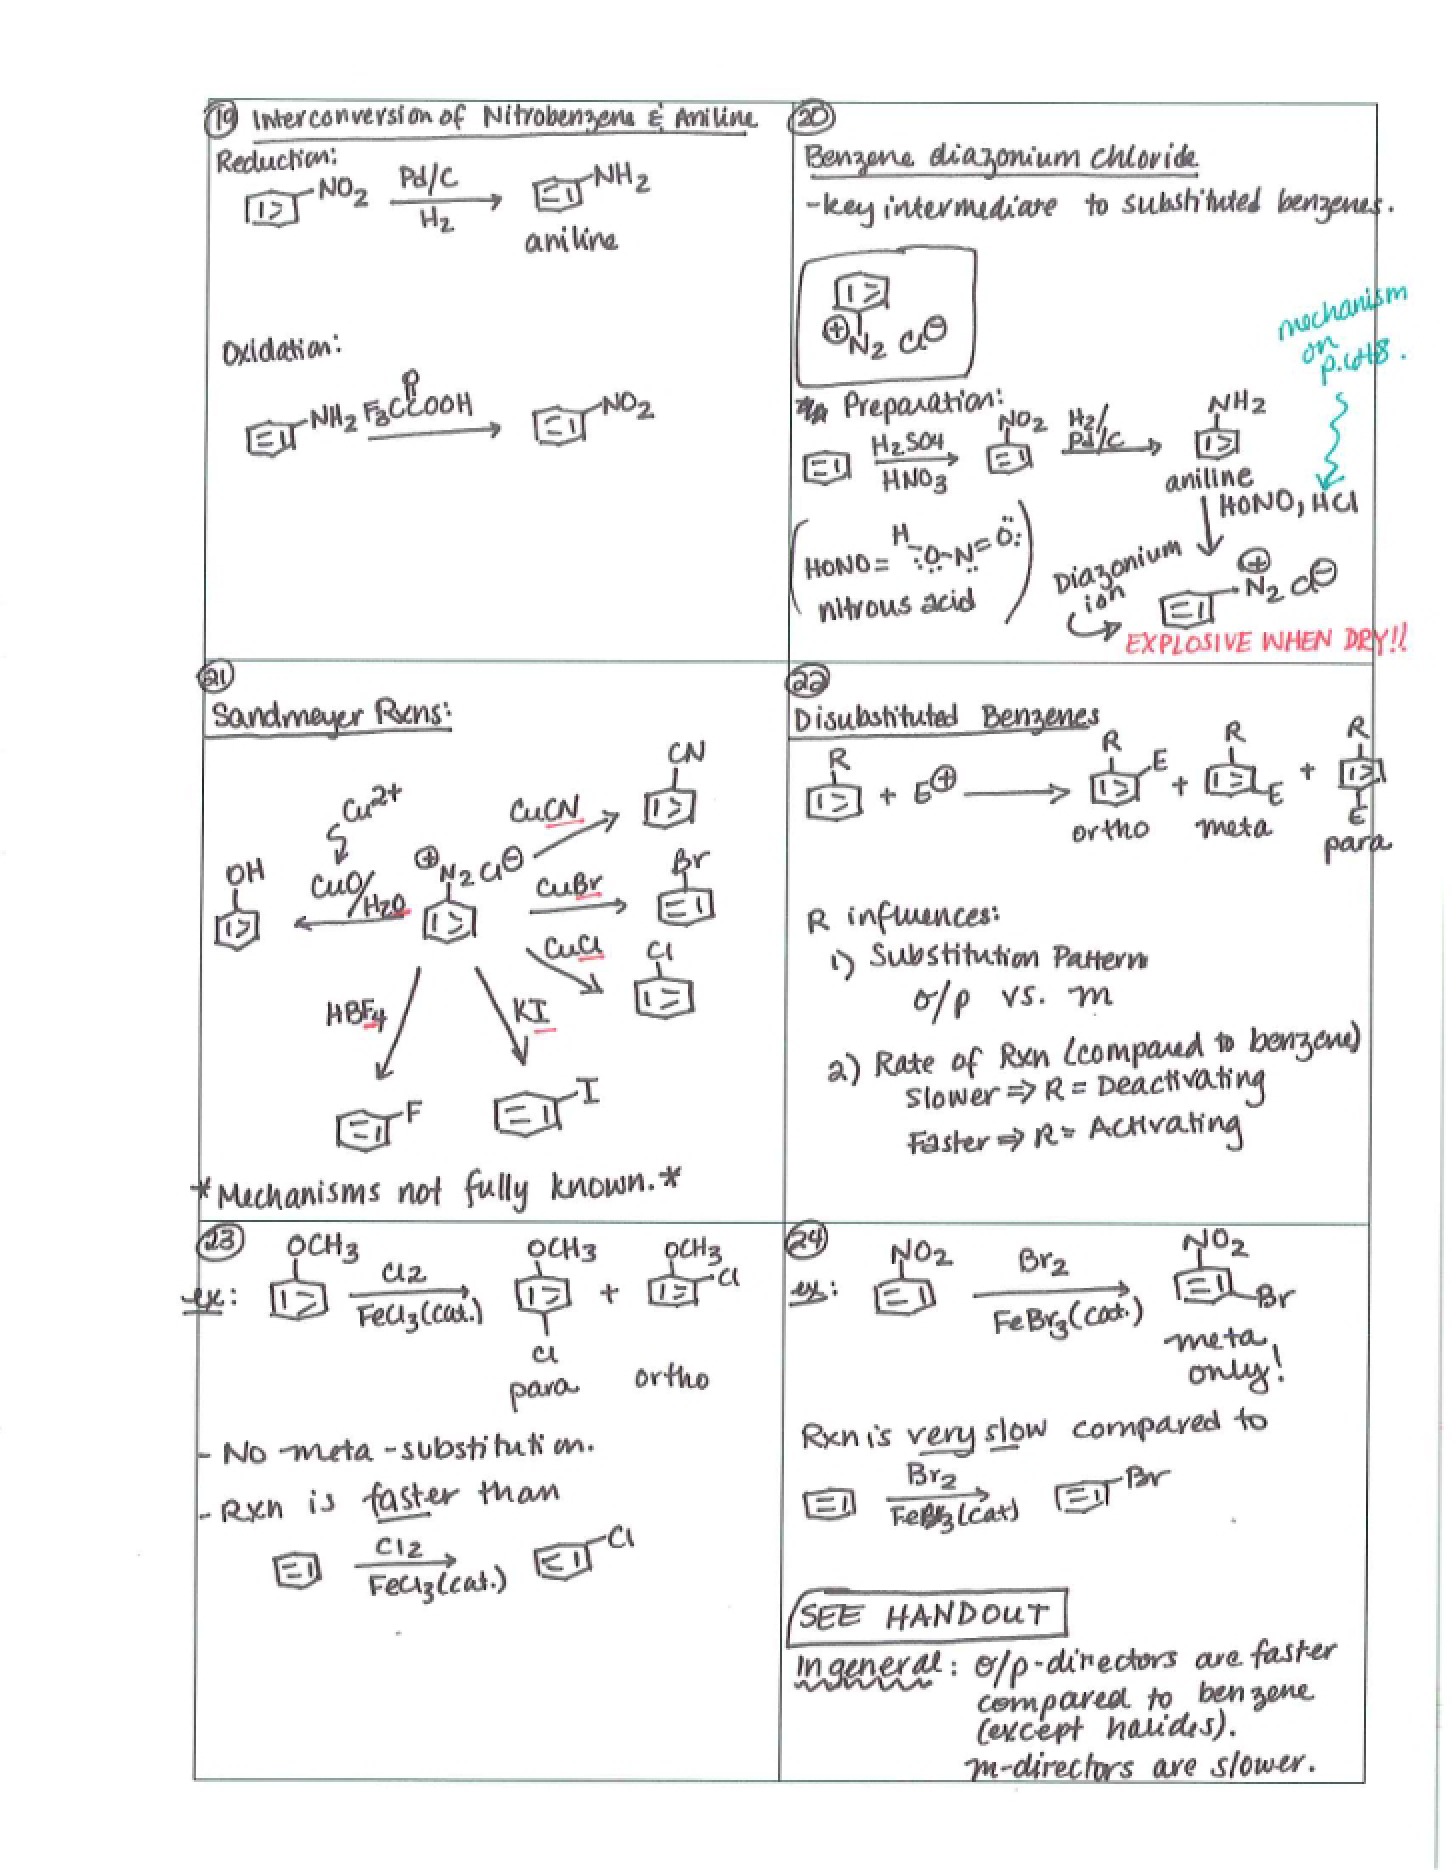 19 Interconversion of Nitrobenzene & Aniline
Reduction:
NO2 Pd/C NH2
H2
aniline
Oxidation:
NH2 F3CCOOH NO2
20
Benzene diazonium chloride
-key intermediate to substituted benzenes.
⊕N2 Cl⊖
mechanism
on
Preparation:
H2SO4 NO2 H2/ NH2
HNO3 Pd/C
aniline
HONO, HCl
(HONO = H-O-N=O:)
nitrous acid
Diazonium
ion
⊕N2 Cl⊖
EXPLOSIVE WHEN DRY!!
21
Sandmeyer Rxns:
CN
Cu2+ CuCN
OH CuO/H2O ⊕N2 Cl⊖ CuBr Br
CuCl Cl
HBF4 KI
F I
*Mechanisms not fully known.*
22
Disubstituted Benzenes
R + E⊕ R E + R E + R E
ortho meta para
R influences:
1) Substitution Pattern
o/p vs. m
2) Rate of Rxn (compared to benzene)
Slower ⇒ R = Deactivating
Faster ⇒ R = Activating
23
ex: OCH3 Cl2 OCH3 + OCH3 Cl
FeCl3 (cat.)
Cl
para ortho
- No meta-substitution.
- Rxn is faster than
Cl2 Cl
FeCl3 (cat.)
24
ex: NO2 Br2 NO2
FeBr3 (cat.) Br
meta
only!
Rxn is very slow compared to
Br2 Br
FeBr3 (cat)
SEE HANDOUT
In general: o/p-directors are faster
compared to benzene
(except halides).
m-directors are slower.